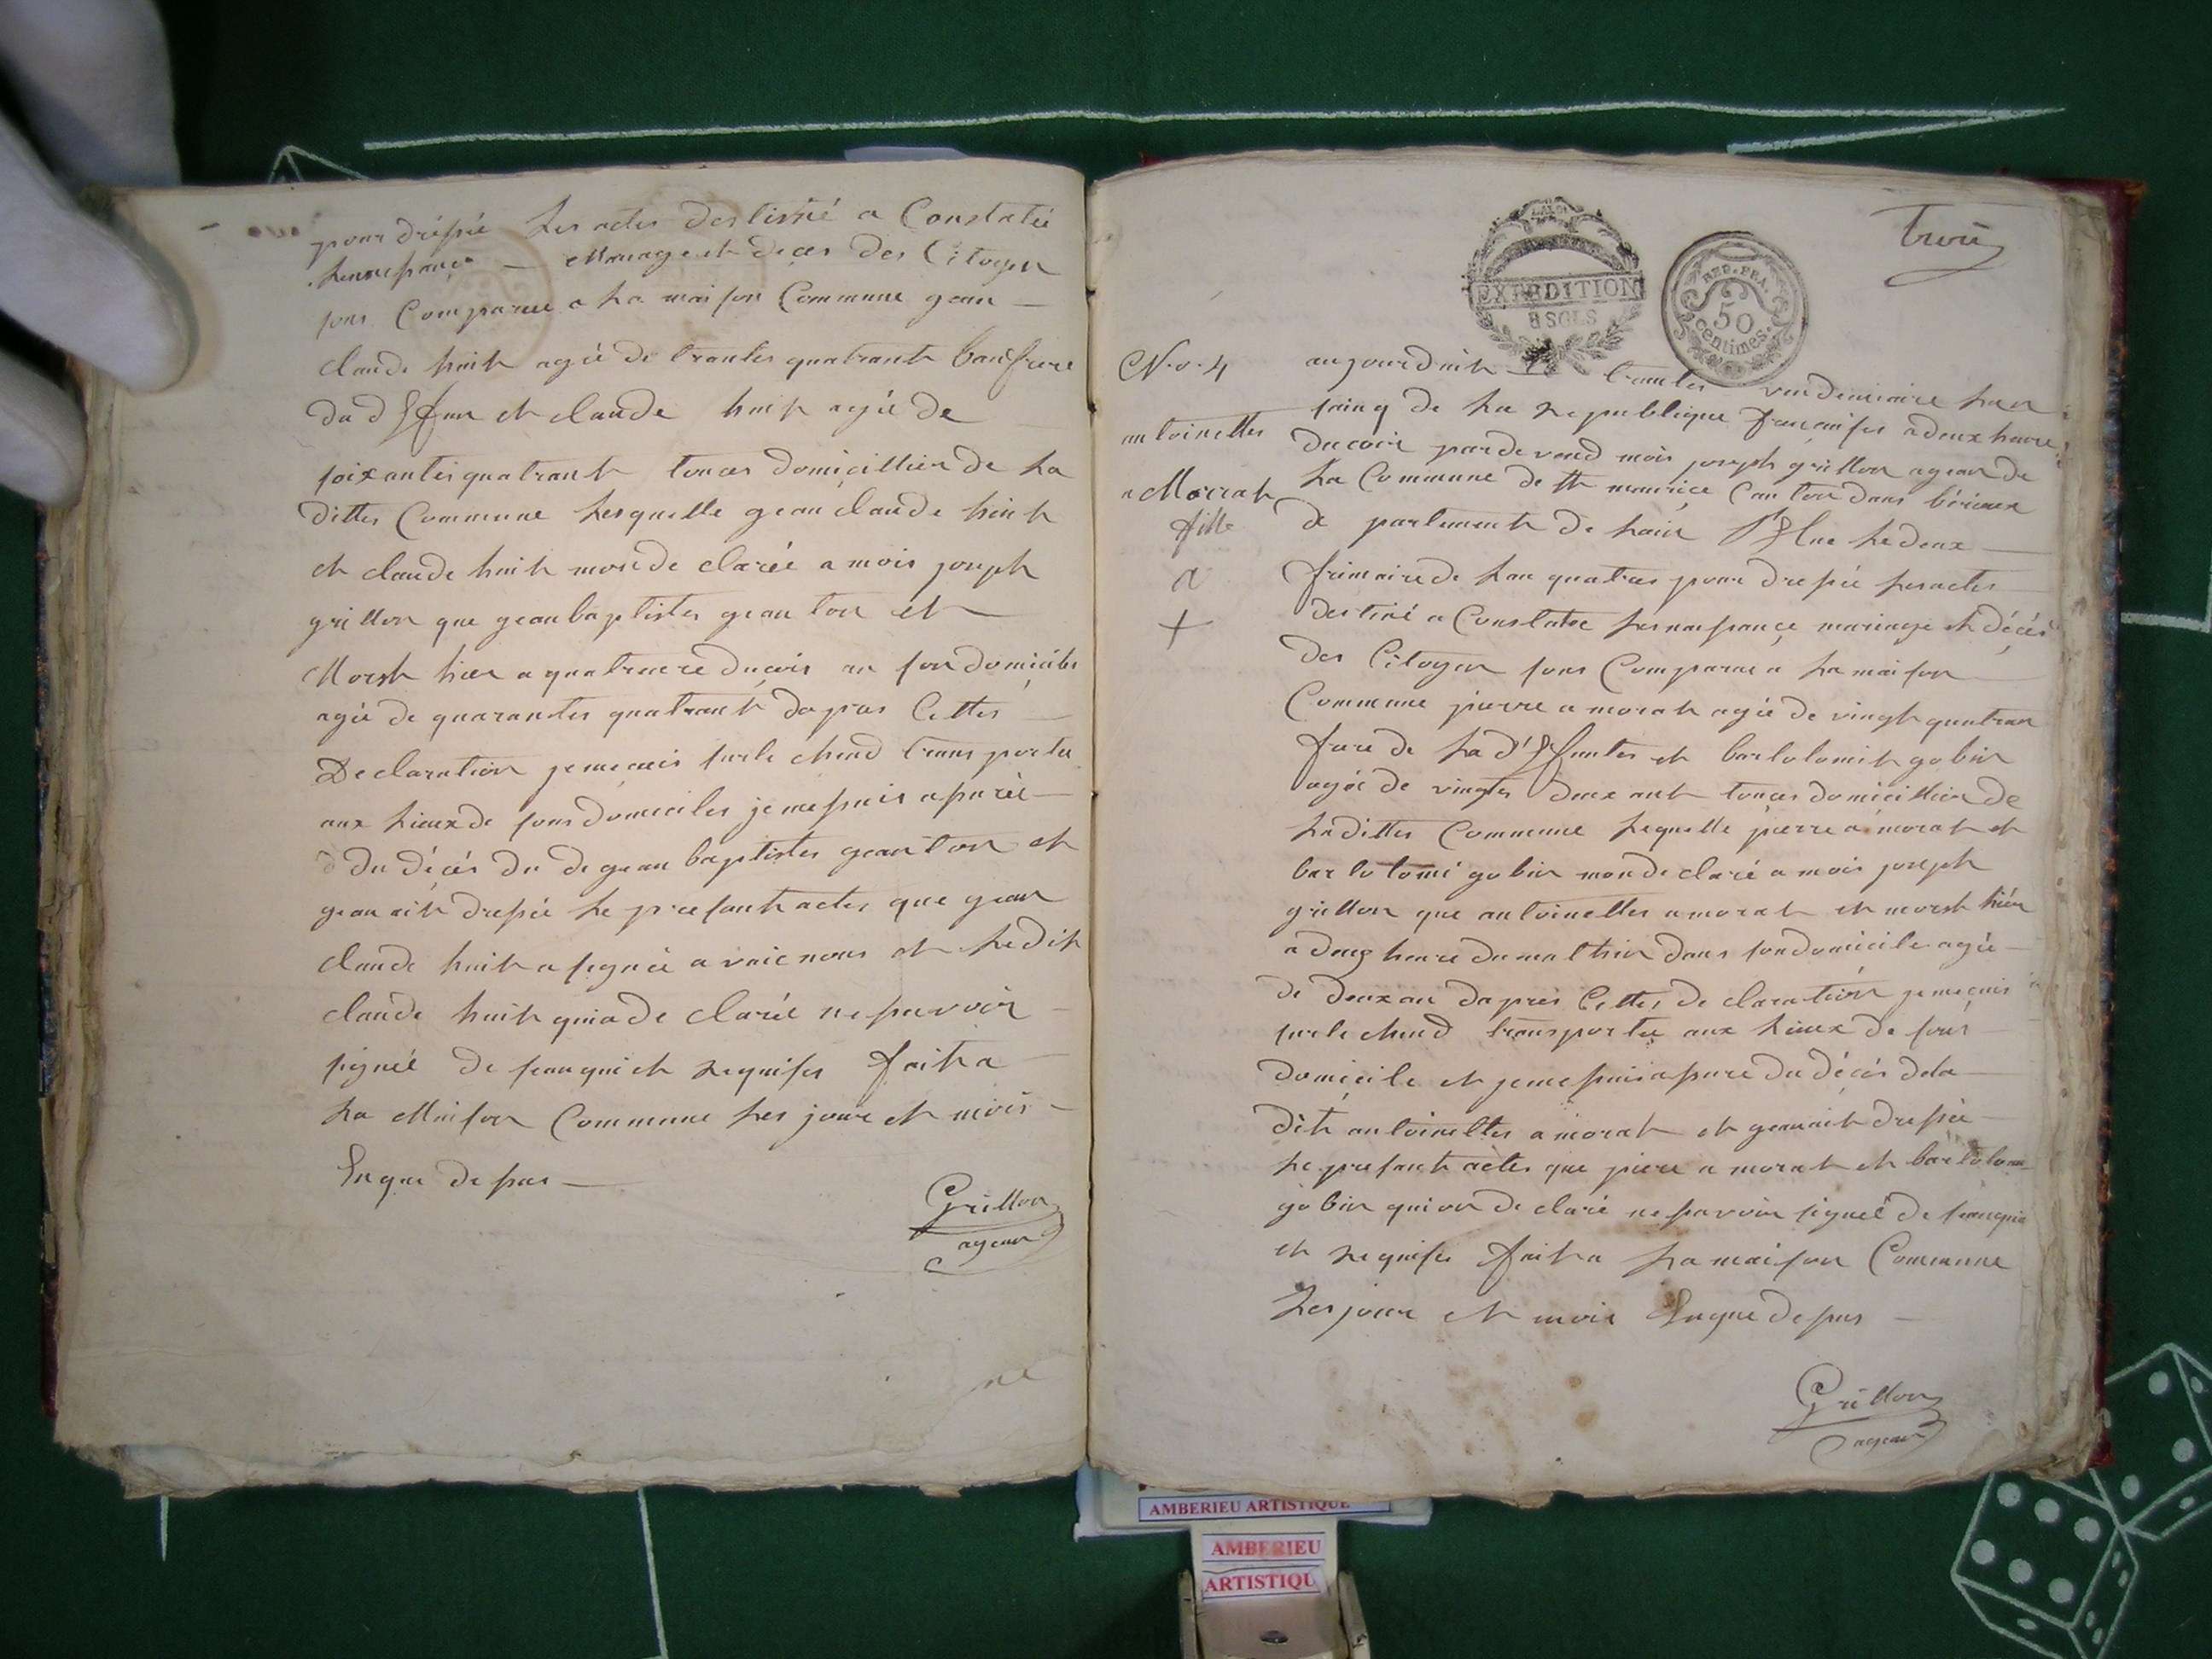 pour dréssé Les actes destinné a Constatée
Lennaissançe — Mariage et deces des Citoyen
sons Comparue a La maison Commune gean —
claude huit agée de trantes quatrant baufrere
du d et claude huit agée de
soixantes quatrant touces domicillier de La
dittes Commune Lesquelle gean claude huit
et claude huit mon de clarée a mois joseph
grillon que gean baptistes geanton et
Morst hier a quatreure du çois au son domiciles
agée de quarantes quatrant daprès Cettes —
Declaration jeme çuis surle chend transportu
aux Lieux de sons domiciles je me suis apuréé —
d du décès du de gean baptistes geanton et
gean ait dressée Le presant actes que gean
claude huit a segnée a vaic nous et Le dit
claude huit qui a de clarée ne savoir —
signéé de seanquiet requises fait a —
La Maison Commune Les jour et mois —
Enque desus —
Grillon
agean
Trois
EXPEDITION
8 SOLS
REP. FRA.
50
centimes.
N.o. 4
antoinettes
a Morrat
fille
a
+
aujourduit trantes vandemiaire Lan
sainq de La republique françaises a deux heure
du çoir pardevend mois joseph grillon agean de
La Commune de St mauriçe Canton dans bérieux
de partement de Lain Elue Le deux —
frimaire de Lan quatres pour dressée Lesactes
destiné a Constatée Lesnaissançe mariage et décés
des Citoyen sons Comparue a La maison
Commune pierre a morat agée de vingt quatran
frere de La d et bartolomit gobin
agée de vingtes deux ant touces domicillier de
Ladittes Commune Lequelle pierre a morat et
bartolomi gobin mon de claré a mois joseph
grillon que antoinettes a morat et morst hiér
a deux heure du mathin dans son domicile agée —
de deux an daprès Cettes de claration jeme çuis
surle chend transportée aux Lieux de sons
domiçile et jeme suis asure du décès dela —
dit antoinettes a morat et gean ait dressée
Le presant actes que piere a morat et bartolom
gobin qui on de claré ne savoir signéé de seanquie
et requises fait a La maison Commune
Les jour et mois Enque desus —
Grillon
agean
AMBERIEU ARTISTIQUE
AMBERIEU
ARTISTIQU